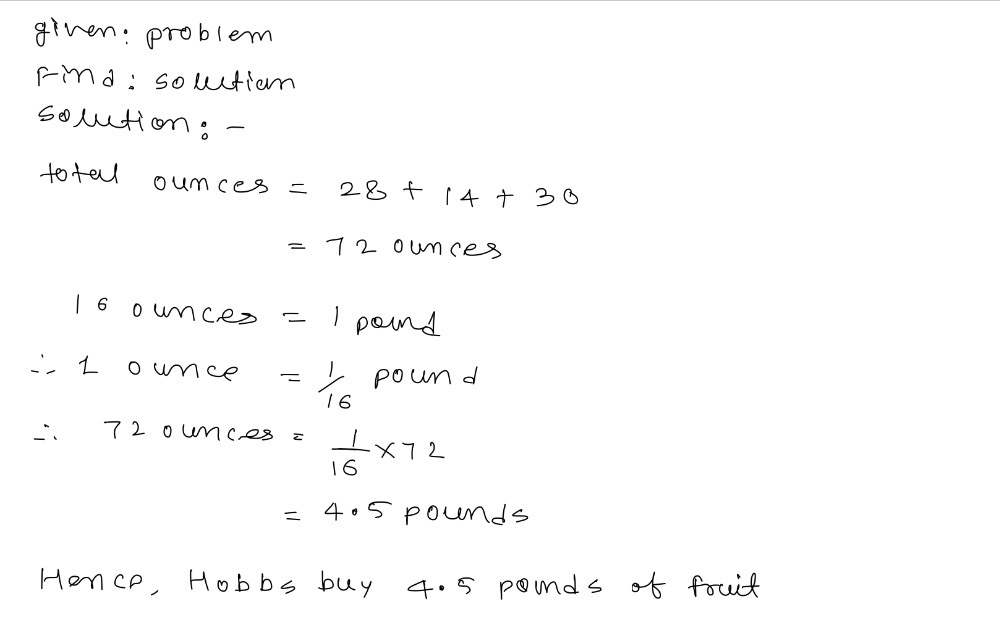 given: problem
Find: solution
solution: -
total ounces = 28 + 14 + 30
= 72 ounces
16 ounces = 1 pound
∴ 1 ounce = 1/16 pound
∴ 72 ounces = 1/16 × 72
= 4.5 pounds
Hence, Hobbs buy 4.5 pounds of fruit